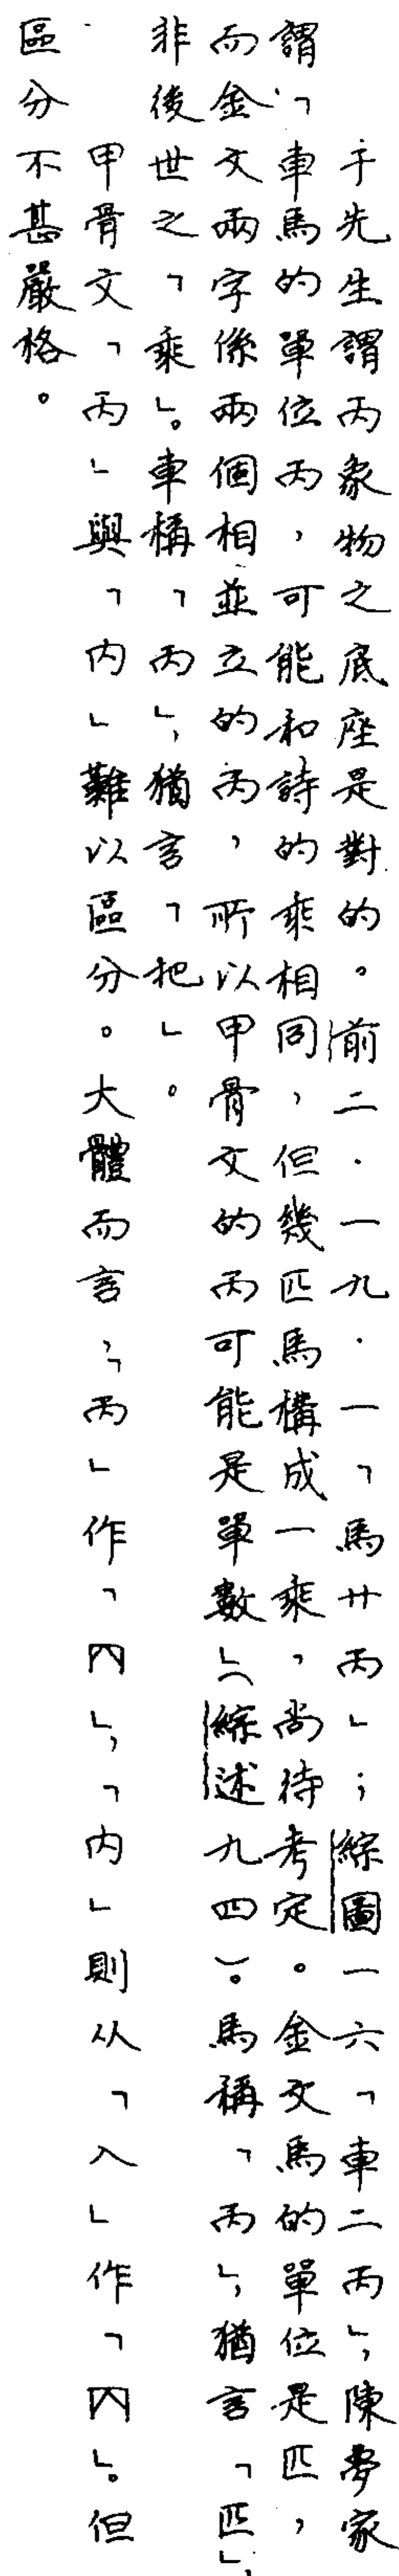 于先生謂丙象物之底座是對的。前二·一九·一「馬廿丙」；綜圖一六「車二丙」，陳夢家
謂「車馬的單位丙，可能和詩的乘相同，但幾匹馬構成一乘，尚待考定。金文馬的單位是匹，
而金文兩字係兩個相並立的丙，所以甲骨文的丙可能是單數」（綜述九四）。馬稱「丙」，猶言「匹」，
非後世之「乘」。車稱「丙」，猶言「把」。
甲骨文「丙」與「内」難以區分。大體而言，「丙」作「𠕒」，「内」則从「入」作「内」。但
區分不甚嚴格。